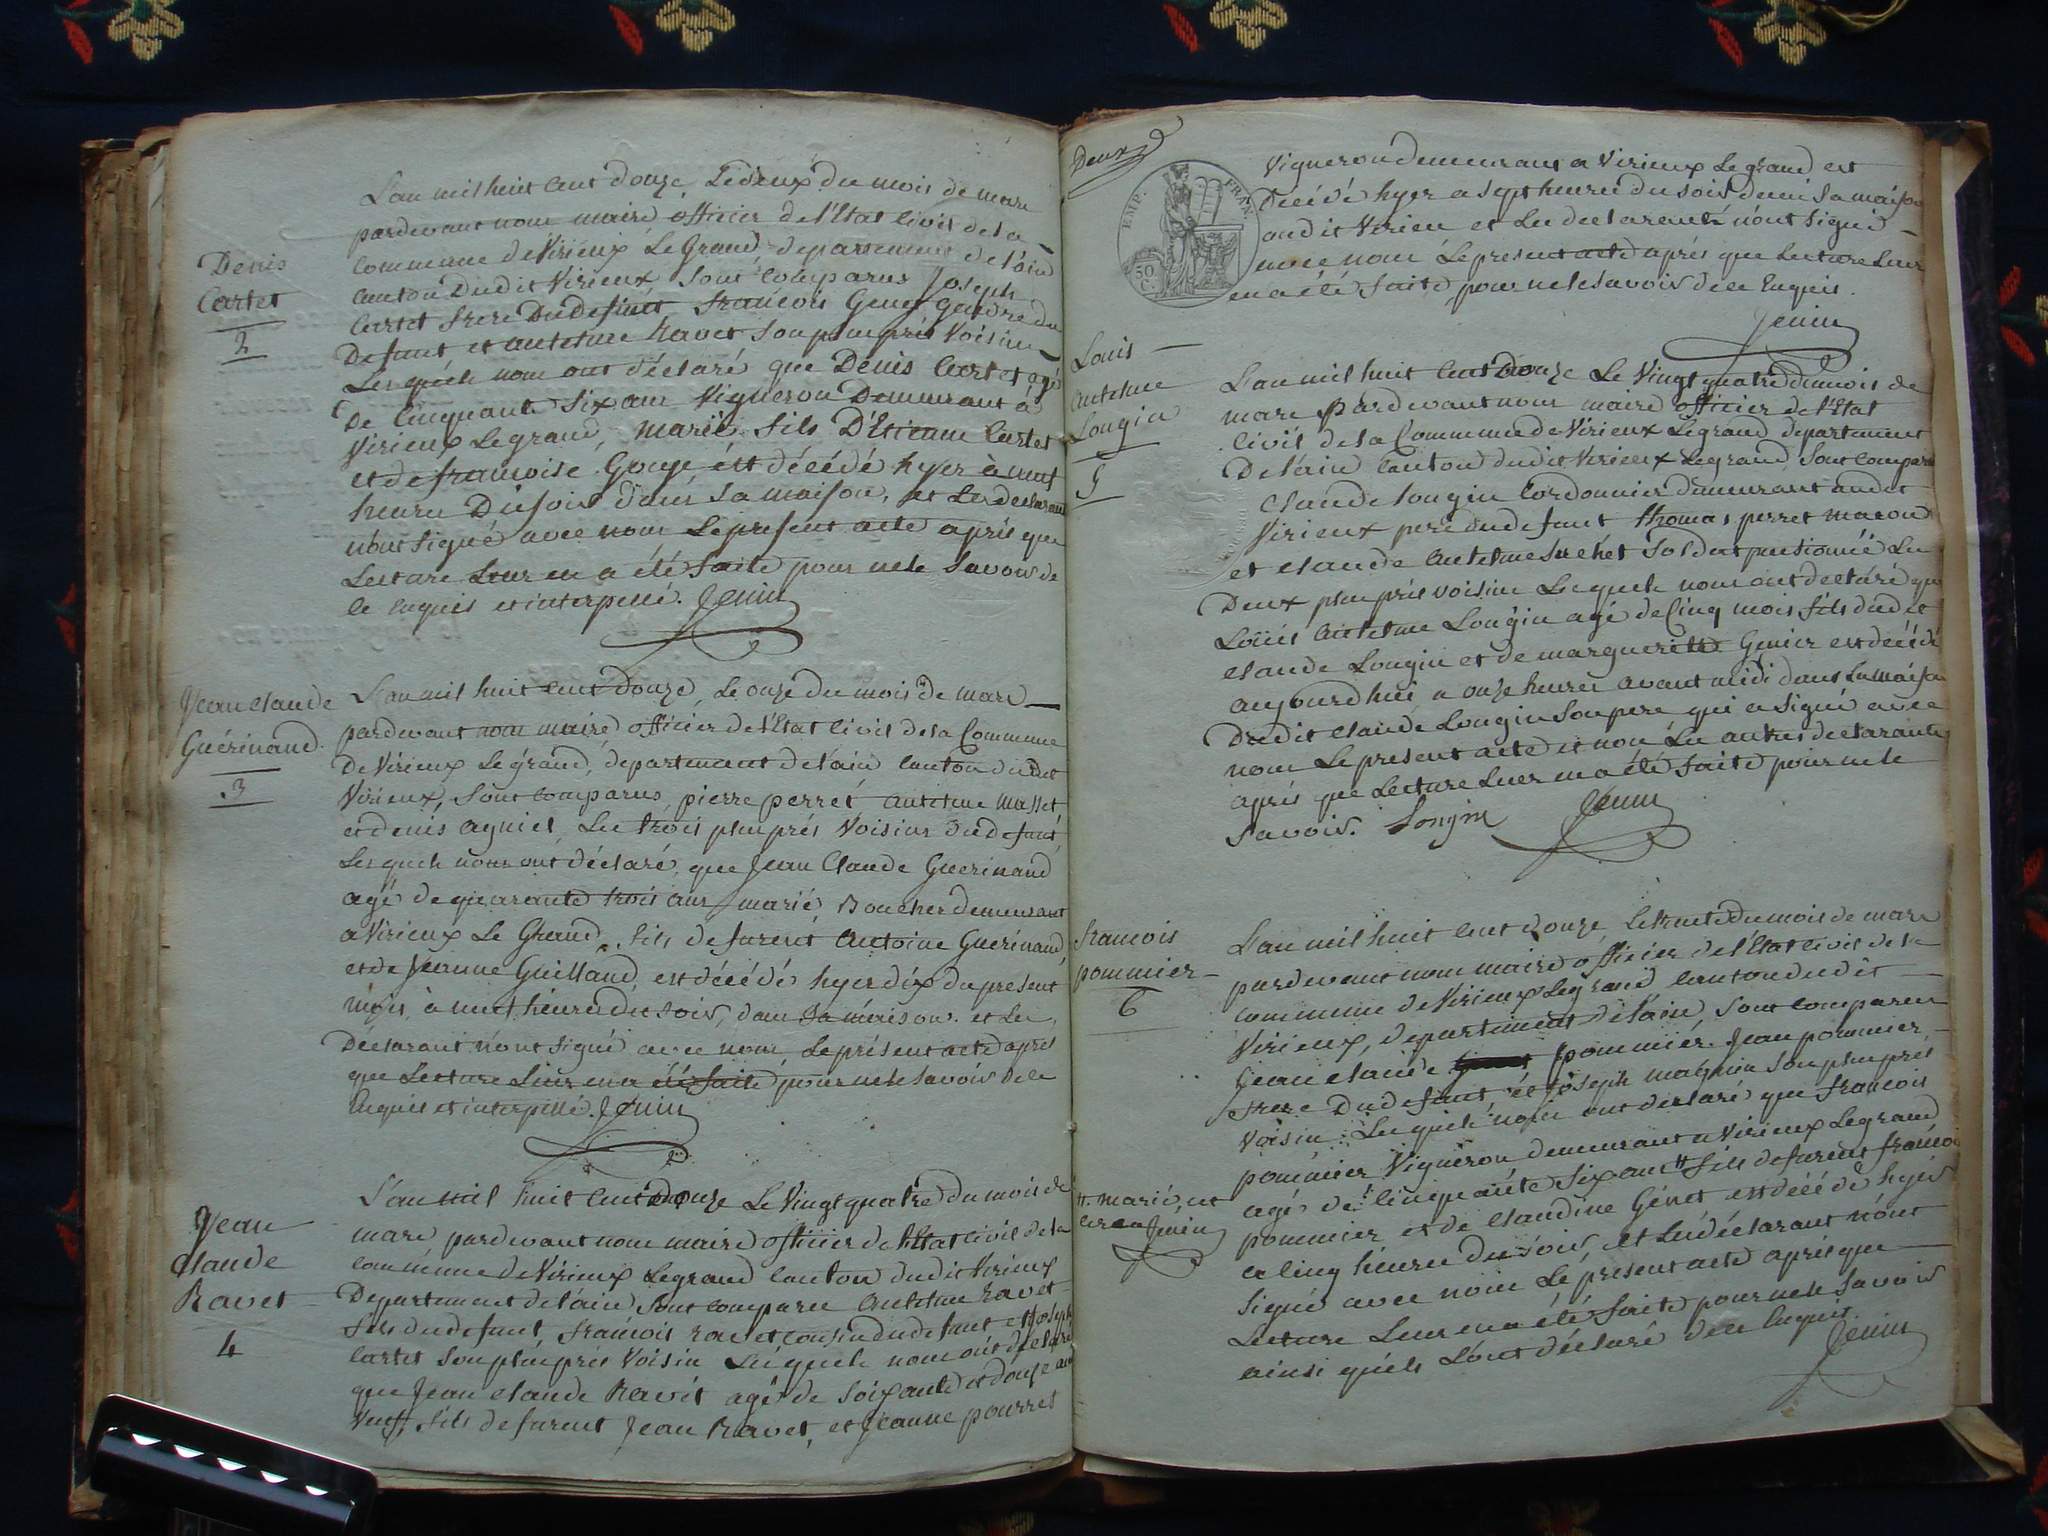 Denis
Cartet
2
L'an mil huit cent douze, Le deux du mois de mars
pardevant nous maire officier de l'Etat civil de la
commune de Virieux Le Grand departement de l'ain
canton Dudit Virieux, sont comparus Joseph
Cartet frere Du defunt, francois Genet Gendre du
Defunt et antelme Ravet son plus près Voisin
Lesquels nous ont déclaré que Dénis Cartet agé
de cinquante six ans Vigneron Demeurant à
Virieux Le grand, marié fils D'Etienne Cartet
et de francoise Gouje ést décédé hyer à neuf
heures Du soir dans sa maison, et Les declarant
n'ont signé avec nous Le present acte après que
Lecture Leur en a été faite pour ne le Savoir de
ce enquis et interpellé. Jenin
Jean claude
Guérinand
3
L'an mil huit cent douze, Le onze du mois de mars
pardevant nous maire officier de l'Etat civil de la Commune
De Virieux Le grand, departement de l'ain canton dudit
Virieux, sont comparus, pierre perret antelme Masset
et denis agniel, Les trois plus près Voisins du defunt
Lesquels nous ont déclaré, que Jean Claude Guerinand
agé de quarante trois ans marié, Boucher demeurant
a Virieux Le Grand, fils de furent Antoine Guérinand,
et de Jeanne Guilland, est décédé hyer dix du présent
mois, à neuf heures du soir, dans sa maison. et Les
Déclarant n'ont signé avec nous, Le présent acte après
que Lecture Leur en a été faite pour ne le savoir de ce
enquis et interpellé. Jenin
Jean
Claude
Ravet
4
L'an mil huit cent douze Le Vingt quatre du mois de
mars pardevant nous maire officier de l'Etat civil de la
commune de Virieux Legrand canton dudit Virieux
Departement de l'ain, sont comparus antelme ravet
fils du defunt, francois ravet cousin du defunt et Joseph
cartet son plus près Voisin Lesquels nous ont déclaré
que Jean claude Ravet agé de soixante et douze ans
Veuf, fils de furent Jean Ravet, et Jeanne pourret
Deux
EMP. FRAN.
50
C.
Vigneron demeurant a Virieux Le grand est
Décédé hyer a sept heures du soir dans sa maison
audit Virieu et Les declarants n'ont signé
avec nous Le present acte après que Lecture Leur
en a été faite pour ne le savoir de ce enquis.
Jenin
Louis
Antelme
Longin
5
L'an mil huit cent douze Le Vingt quatre du mois de
mars pardevant nous maire officier de l'Etat
civil de la Commune de Virieux Legrand departement
De l'ain canton dudit Virieux Legrand sont comparus
Claude Longin cordonnier demeurant audit
Virieux pere du defunt thomas perret macon
et claude antelme Suchet soldat pensionné Les
Deux plus près voisins Lesquels nous ont declaré que
Loüis antelme Longin agé de cinq mois fils dudit
claude Longin et de margueritte Genier est décédé
aujourd'hui a onze heures avant midi dans La maison
Dudit claude Longin son pere qui a signé avec
nous Le present acte et non Les autres declarants
après que Lecture Leur en a été faite pour ne le
savoir. Longin Jenin
francois
pommier
6
L'an mil huit cent douze Le trente du mois de mars
pardevant nous maire officier de l'Etat civil de la
commune de Virieux Legrand canton dudit
Virieux, departement de l'ain, sont comparus
Jean claude pommier. Jean pommier
frere Du defunt, et Joseph magnin son plus près
Voisin. Lesquels nous ont declaré que francois
pommier Vigneron demeurant a Virieux Legrand
agé de cinquante six ans # fils de furent francois
pommier et de claudine Génet est décédé hyer
a cinq heures du soir, et Les déclarant n'ont
signé avec nous Le present acte après que
Lecture Leur en a été faite pour ne le savoir
ainsi qu'ils L'ont déclaré de ce enquis.
Jenin
# marié, et
Jenin